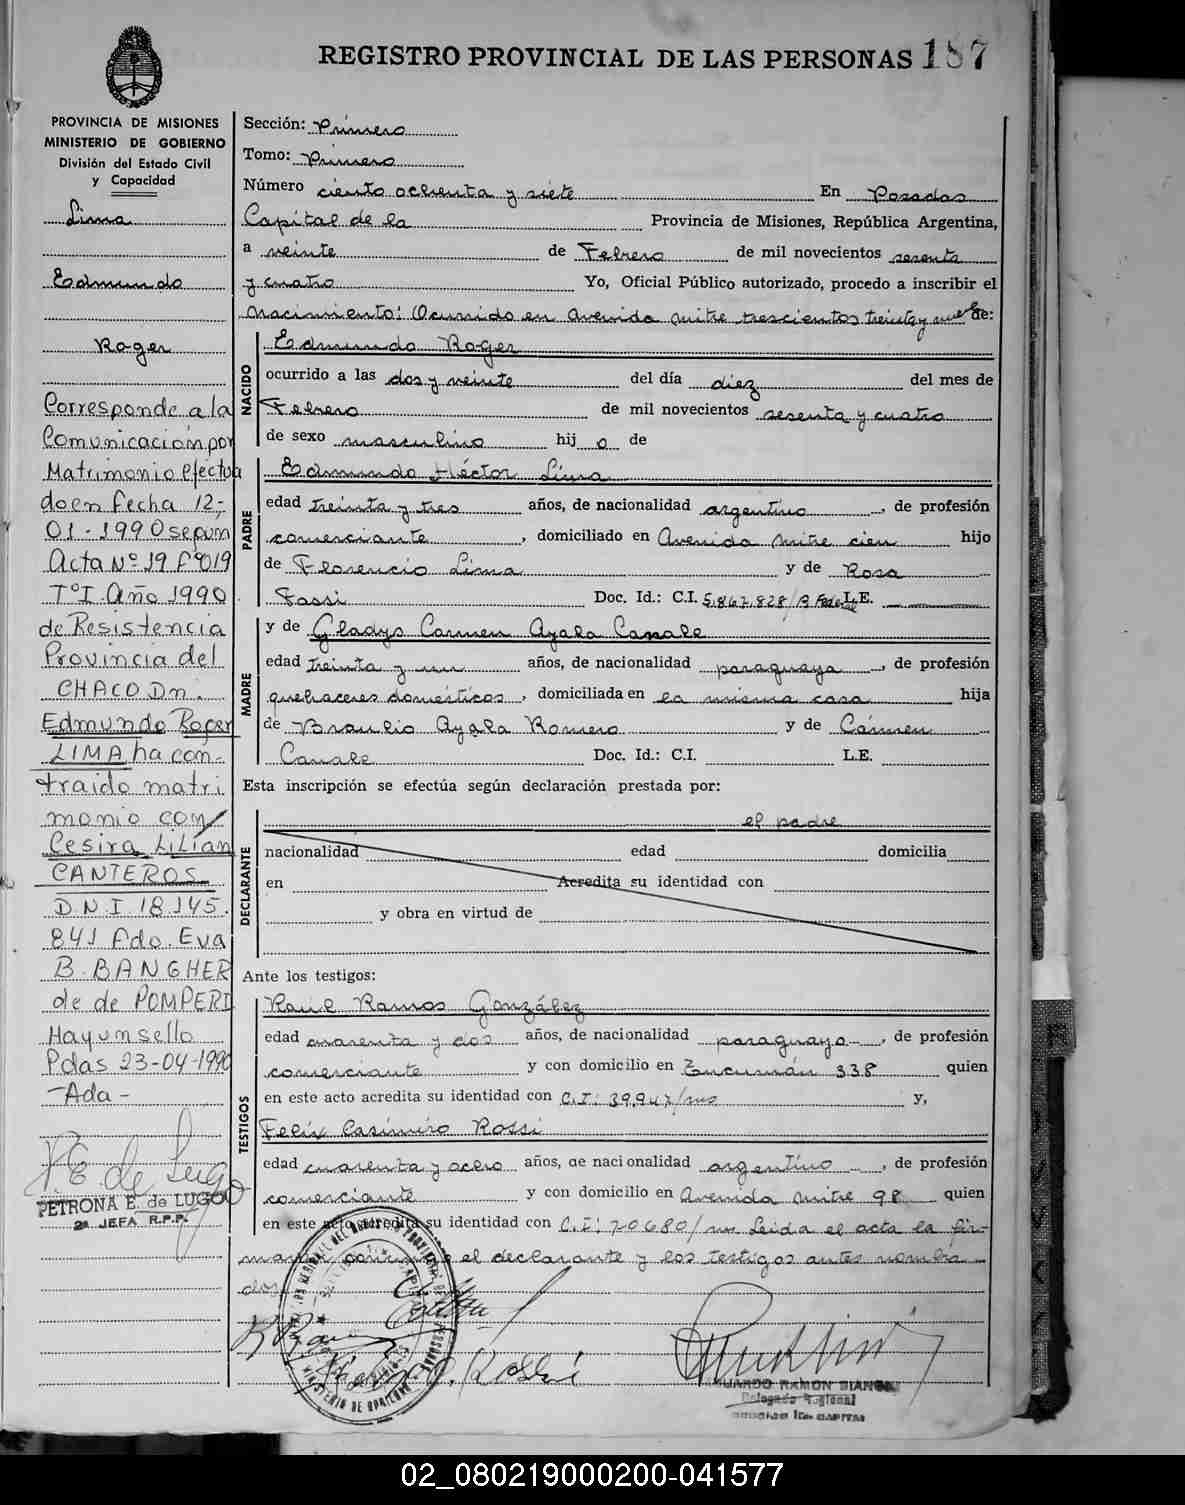 REGISTRO PROVINCIAL DE LAS PERSONAS 187
PROVINCIA DE MISIONES
MINISTERIO DE GOBIERNO
División del Estado Civil
y Capacidad
Lima
Edmundo
Roger
Corresponde a la
Comunicación por
Matrimonio efectua
do en fecha 12-
01-1990 segun
Acta Nº 19 Fº 019
Tº I Año 1990
de Resistencia
Provincia del
CHACO Dn.
Edmundo Roger
LIMA ha con-
traido matri
monio con
Cesira Lilian
CANTEROS
D.N.I 18.145.
841 Fdo. Eva
B. BANGHER
de de POMPERI
Hay un sello
Pdas 23-04-1990
-Ada-
P.E. de Lugo
PETRONA E. de LUGO
2ª JEFA R.P.P.
Sección: Primero
Tomo: Primero
Número ciento ochenta y siete En Posadas
Capital de la Provincia de Misiones, República Argentina,
a veinte de Febrero de mil novecientos sesenta
y cuatro Yo, Oficial Público autorizado, procedo a inscribir el
Nacimiento: Ocurrido en Avenida Mitre trescientos treinta y nueve de:
NACIDO
Edmundo Roger
ocurrido a las dos y veinte del día diez del mes de
Febrero de mil novecientos sesenta y cuatro
de sexo masculino hij o de
PADRE
Edmundo Héctor Lima
edad treinta y tres años, de nacionalidad argentino, de profesión
comerciante, domiciliado en Avenida Mitre cien hijo
de Florencio Lima y de Rosa
Fassi Doc. Id.: C.I. 5.867.828/P. Federal L.E.
MADRE
y de Gladys Carmen Ayala Canale
edad treinta y un años, de nacionalidad paraguaya, de profesión
quehaceres domésticos, domiciliada en la misma casa hija
de Braulio Ayala Romero y de Cármen
Canale Doc. Id.: C.I. L.E.
Esta inscripción se efectúa según declaración prestada por:
DECLARANTE
el padre
nacionalidad edad domicilia
en Acredita su identidad con
y obra en virtud de
Ante los testigos:
TESTIGOS
Raúl Ramos González
edad cuarenta y dos años, de nacionalidad paraguayo, de profesión
comerciante y con domicilio en Tucumán 338 quien
en este acto acredita su identidad con C.I: 39.947/ms y,
Felix Casimiro Rossi
edad cuarenta y ocho años, de nacionalidad argentino, de profesión
comerciante y con domicilio en Avenida Mitre 98 quien
en este acto acredita su identidad con C.I: 70680/ms. Leida el acta la fir-
man conmigo el declarante y los testigos antes nombra
dos.
Rossi
EDUARDO RAMON BIANCHI
Delegado Regional
02_080219000200-041577